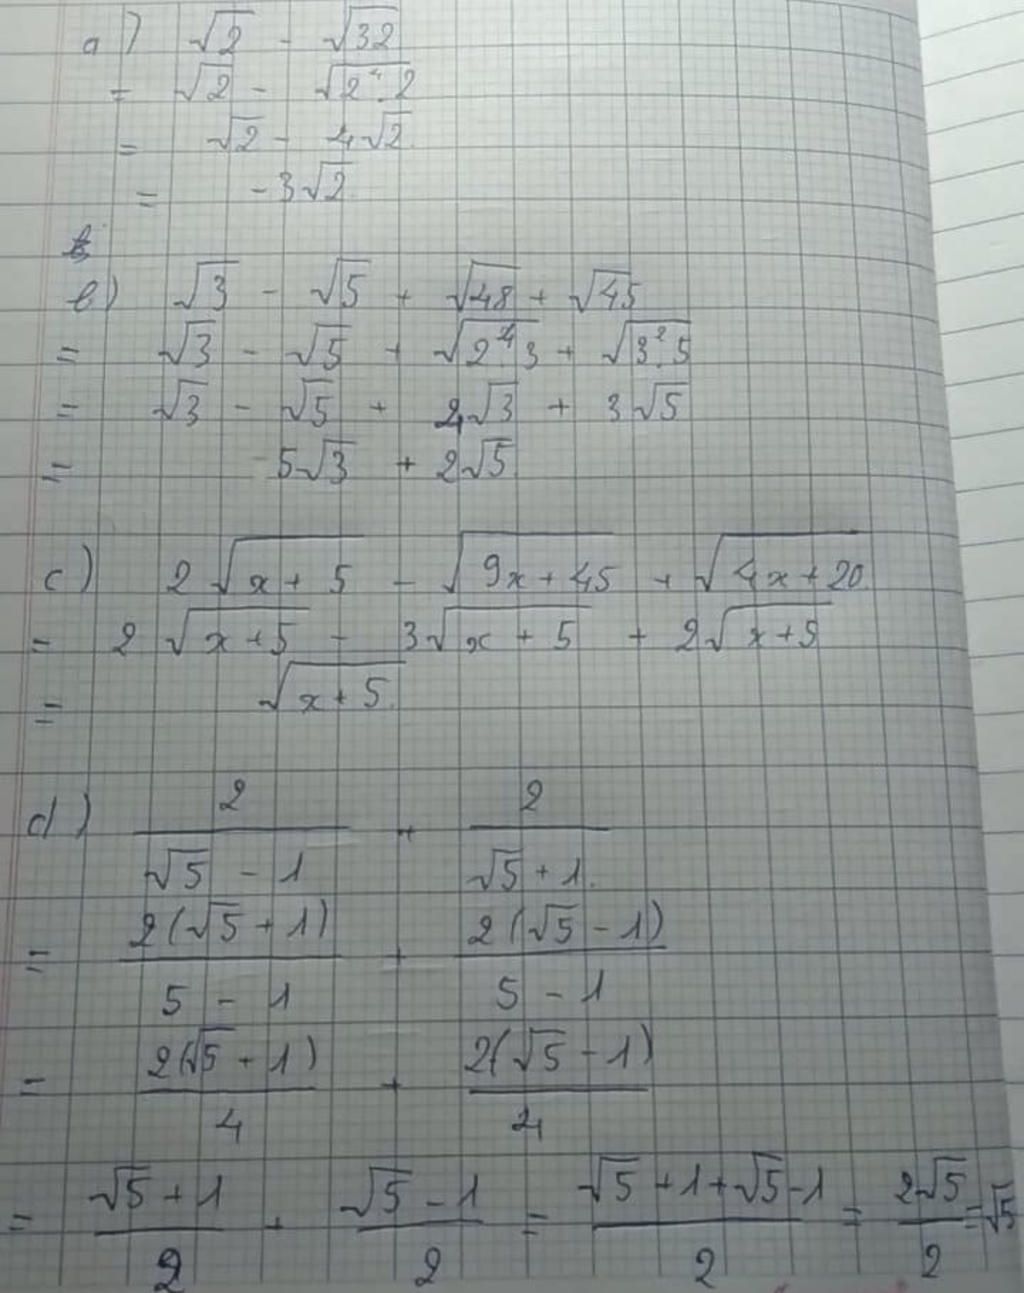 a) √2 - √32
= √2 - √(2⁴.2)
= √2 - 4√2
= -3√2
b) √3 - √5 + √48 + √45
= √3 - √5 + √(2⁴.3) + √(3².5)
= √3 - √5 + 4√3 + 3√5
= 5√3 + 2√5
c) 2√(x + 5) - √(9x + 45) + √(4x + 20)
= 2√(x + 5) - 3√(x + 5) + 2√(x + 5)
= √(x + 5)
d) 2/(√5 - 1) + 2/(√5 + 1)
= 2(√5 + 1)/(5 - 1) + 2(√5 - 1)/(5 - 1)
= 2(√5 + 1)/4 + 2(√5 - 1)/4
= (√5 + 1)/2 + (√5 - 1)/2 = (√5 + 1 + √5 - 1)/2 = 2√5/2 = √5